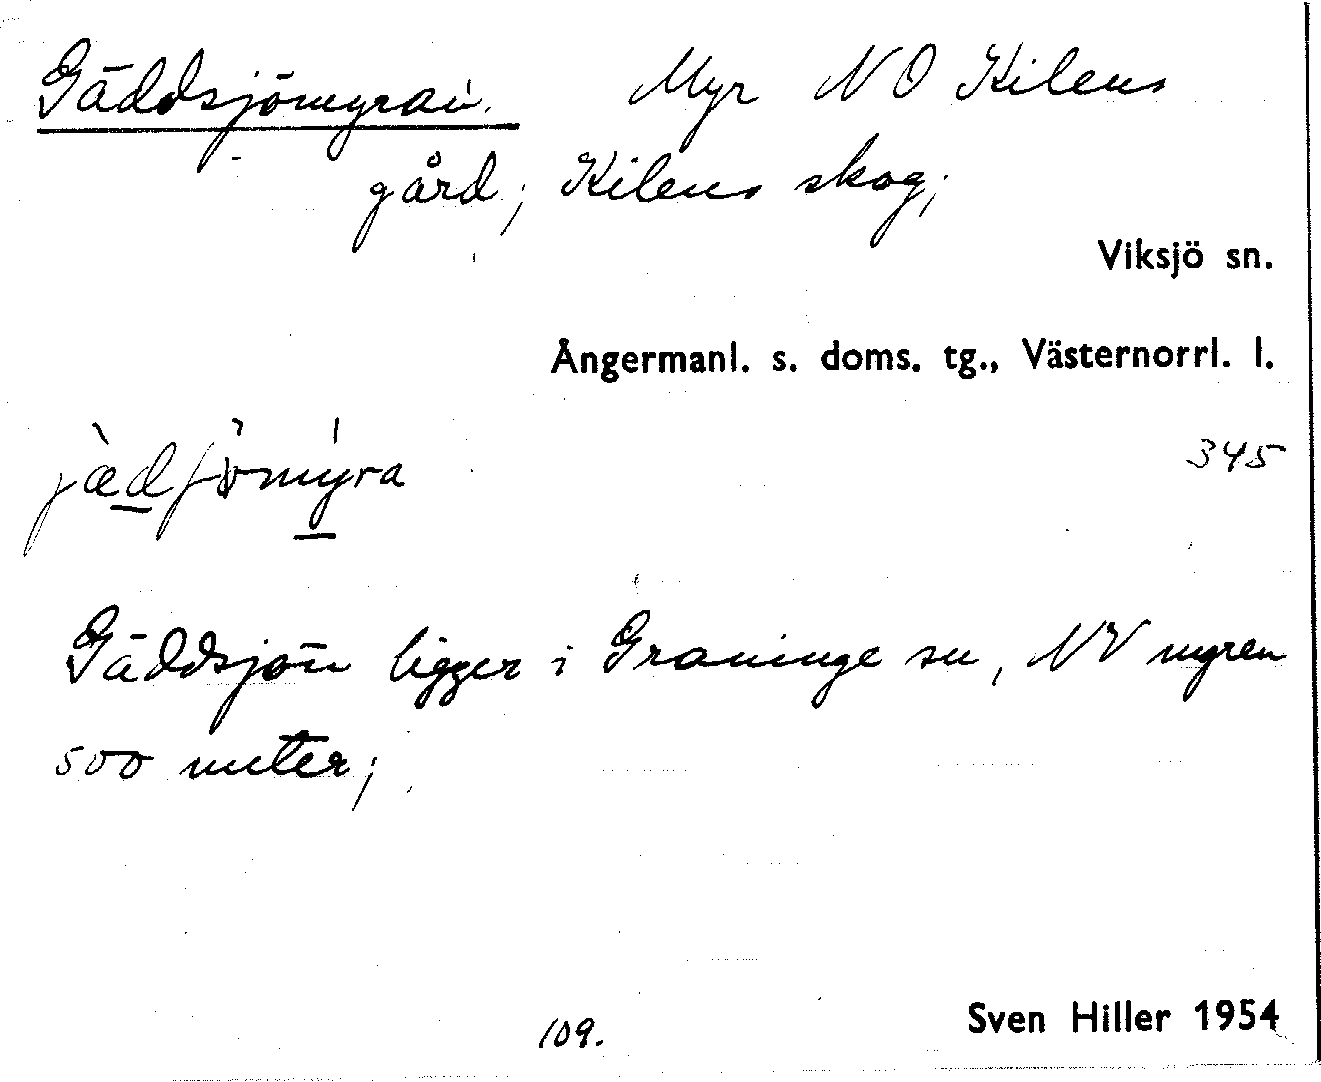 Gäddsjömyran. Myr NO Kilens
gård; Kilens skog;
Viksjö sn.
Ångermanl. s. doms. tg., Västernorrl. l.
345
Gäddsjön ligger i Graninge sn, NV myren
500 meter;
109.
Sven Hiller 1954